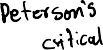 Peterson's
critical